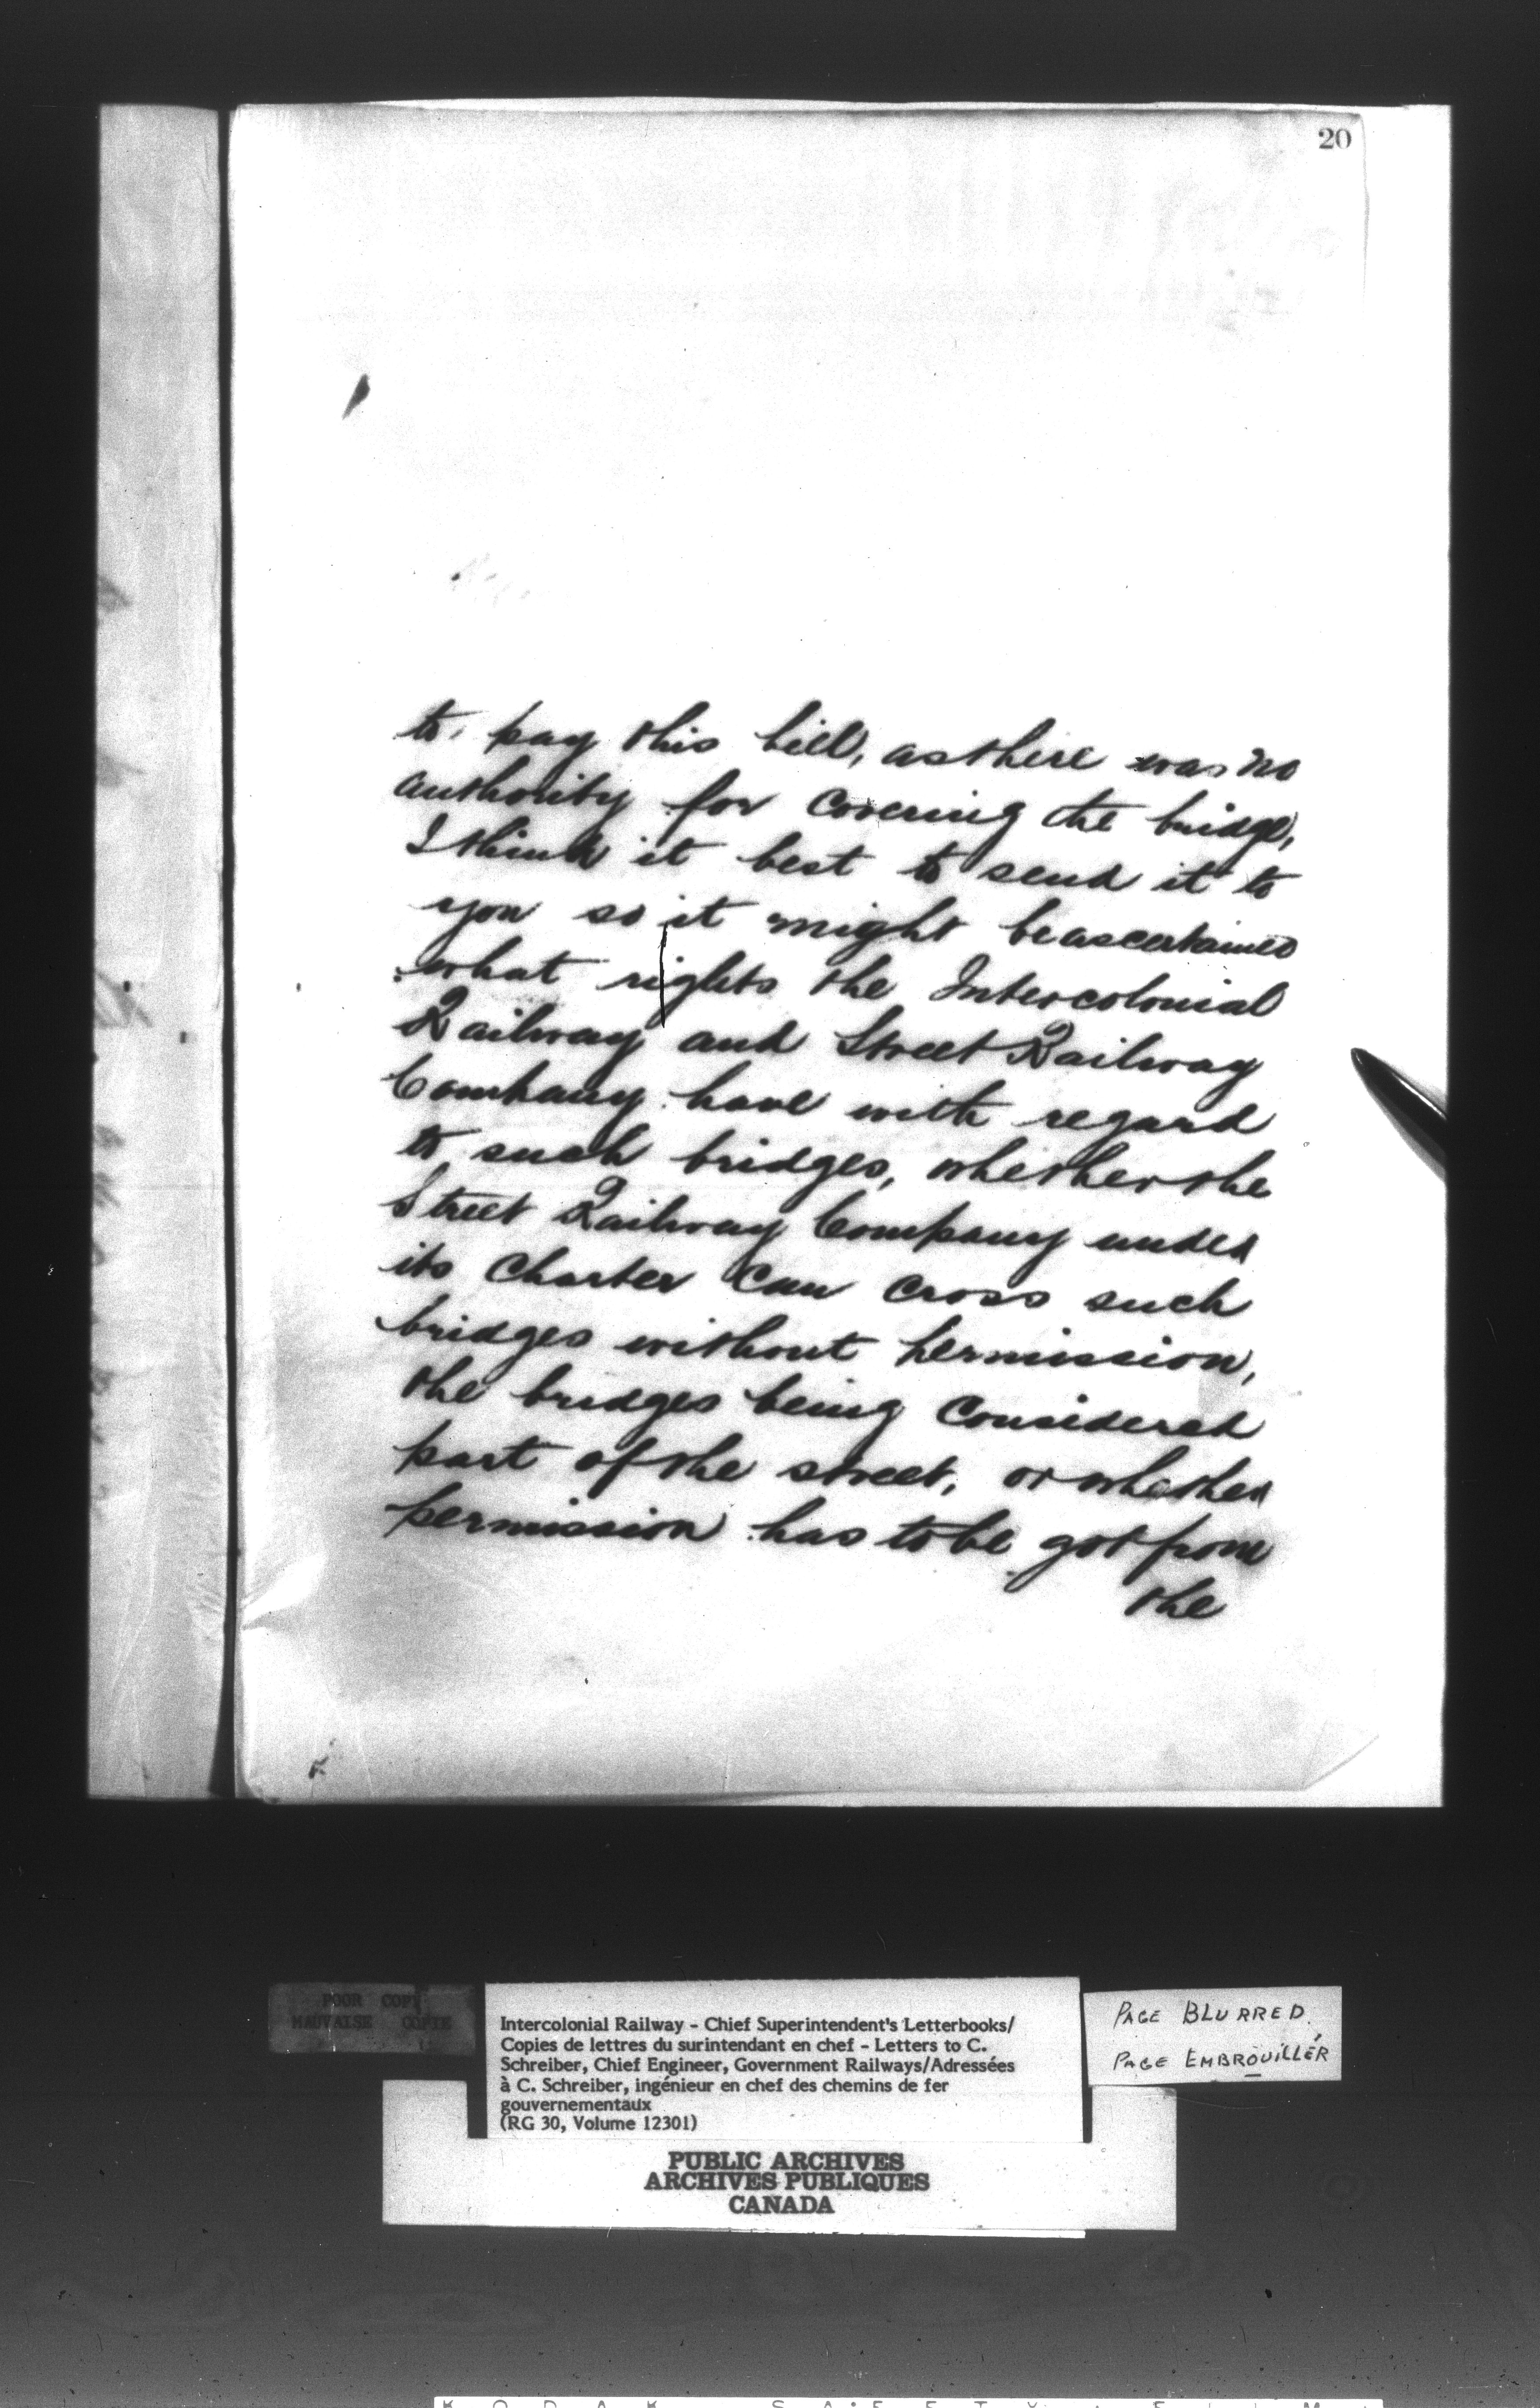 20
to pay this bill, as there was no
authority for covering the bridge,
I think it best to send it to
you so it might be ascertained
what rights the Intercolonial
Railway and Street Railway
Company have with regard
to such bridges, whether the
Street Railway Company under
its Charter can cross such
bridges without permission,
the bridges being considered
part of the street, or whether
permission has to be got from
the
POOR COPY
MAUVAISE COPIE
Intercolonial Railway - Chief Superintendent's Letterbooks/
Copies de lettres du surintendant en chef - Letters to C.
Schreiber, Chief Engineer, Government Railways/Adressées
à C. Schreiber, ingénieur en chef des chemins de fer
gouvernementaux
(RG 30, Volume 12301)
PAGE BLURRED.
PAGE EMBROUILLÉR
PUBLIC ARCHIVES
ARCHIVES PUBLIQUES
CANADA